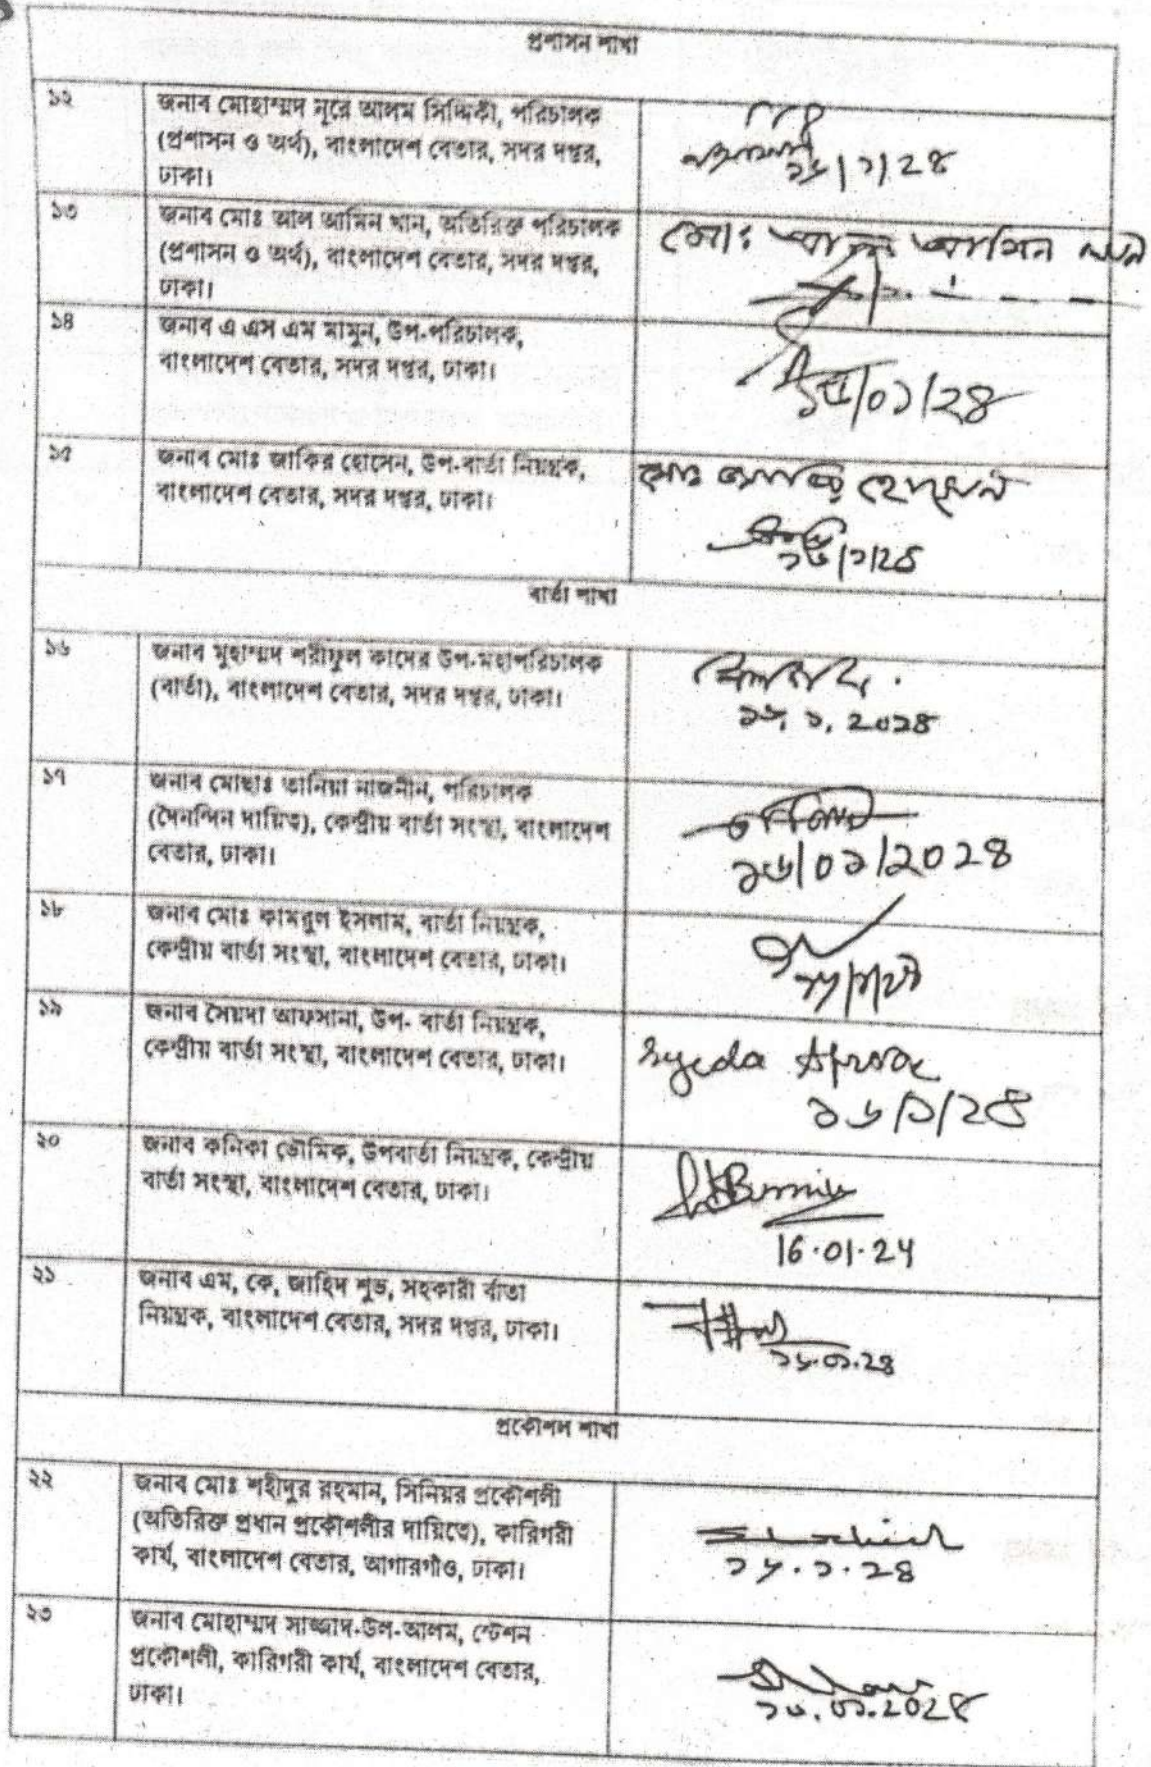 প্রশাসন শাখা
১২
জনাব মোহাম্মদ নূরে আলম সিদ্দিকী, পরিচালক
(প্রশাসন ও অর্থ), বাংলাদেশ বেতার, সদর দপ্তর,
ঢাকা।
১৬/১/২৪
১৩
জনাব মোঃ আল আমিন খান, অতিরিক্ত পরিচালক
(প্রশাসন ও অর্থ), বাংলাদেশ বেতার, সদর দপ্তর,
ঢাকা।
মোঃ আল আমিন খান
১৪
জনাব এ এস এম মামুন, উপ-পরিচালক,
বাংলাদেশ বেতার, সদর দপ্তর, ঢাকা।
১৬/০১/২৪
১৫
জনাব মোঃ জাকির হোসেন, উপ-বার্তা নিয়ন্ত্রক,
বাংলাদেশ বেতার, সদর দপ্তর, ঢাকা।
মোঃ জাকির হোসেন
১৬/১/২৪
বার্তা শাখা
১৬
জনাব মুহাম্মদ শরীফুল কাদের উপ-মহাপরিচালক
(বার্তা), বাংলাদেশ বেতার, সদর দপ্তর, ঢাকা।
১৬.১.২০২৪
১৭
জনাব মোছাঃ তানিয়া নাজনীন, পরিচালক
(দৈনন্দিন দায়িত্ব), কেন্দ্রীয় বার্তা সংস্থা, বাংলাদেশ
বেতার, ঢাকা।
১৬/০১/২০২৪
১৮
জনাব মোঃ কামরুল ইসলাম, বার্তা নিয়ন্ত্রক,
কেন্দ্রীয় বার্তা সংস্থা, বাংলাদেশ বেতার, ঢাকা।
১৬/১/২৪
১৯
জনাব সৈয়দা আফসানা, উপ- বার্তা নিয়ন্ত্রক,
কেন্দ্রীয় বার্তা সংস্থা, বাংলাদেশ বেতার, ঢাকা।
Syeda
১৬/১/২৪
২০
জনাব কনিকা ভৌমিক, উপবার্তা নিয়ন্ত্রক, কেন্দ্রীয়
বার্তা সংস্থা, বাংলাদেশ বেতার, ঢাকা।
16.01.24
২১
জনাব এম, কে, জাহিদ শুভ, সহকারী র্বাতা
নিয়ন্ত্রক, বাংলাদেশ বেতার, সদর দপ্তর, ঢাকা।
১৬.০১.২৪
প্রকৌশল শাখা
২২
জনাব মোঃ শহীদুর রহমান, সিনিয়র প্রকৌশলী
(অতিরিক্ত প্রধান প্রকৌশলীর দায়িত্বে), কারিগরী
কার্য, বাংলাদেশ বেতার, আগারগাঁও, ঢাকা।
১৬.১.২৪
২৩
জনাব মোহাম্মদ সাজ্জাদ-উল-আলম, স্টেশন
প্রকৌশলী, কারিগরী কার্য, বাংলাদেশ বেতার,
ঢাকা।
১৬.০১.২০২৪